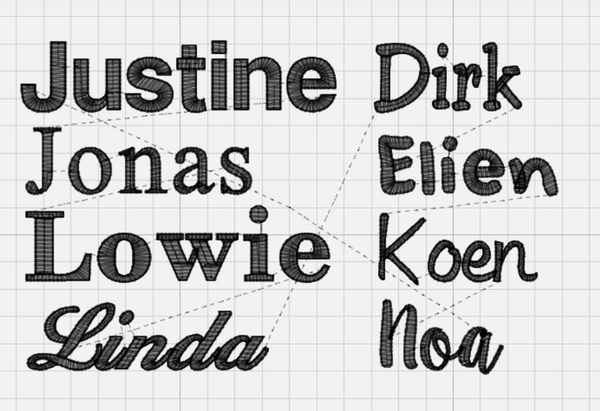 Justine
Jonas
Lowie
Linda
Dirk
Elien
Koen
Noa